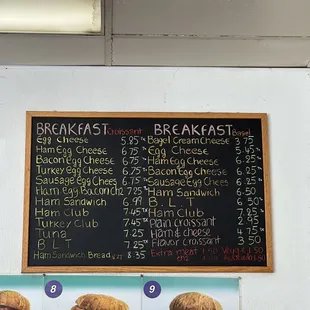 BREAKFAST Croissant
Egg Cheese 5.85
Ham Egg Cheese 6.75
Bacon Egg Cheese 6.75
Turkey Egg Cheese 6.75
Sausage Egg Chees 6.75
Ham Egg Bacon Ch 7.25
Ham Sandwich 6.99
Ham Club 7.45
Turkey Club 7.45
Tuna 7.25
B L T 7.25
Ham Sandwich Bread 8.35
BREAKFAST Bagel
Bagel Cream Cheese 3.75
Egg Cheese 5.45
Ham Egg Cheese 6.25
Bacon Egg Cheese 6.25
Sausage Egg Chees 6.25
Ham Sandwich 6.50
B. L. T 6.50
Ham Club 7.25
Plain Croissant 2.95
Ham & cheese 4.75
Flavor Croissant 3.50
Extra meat 1.50
8
9